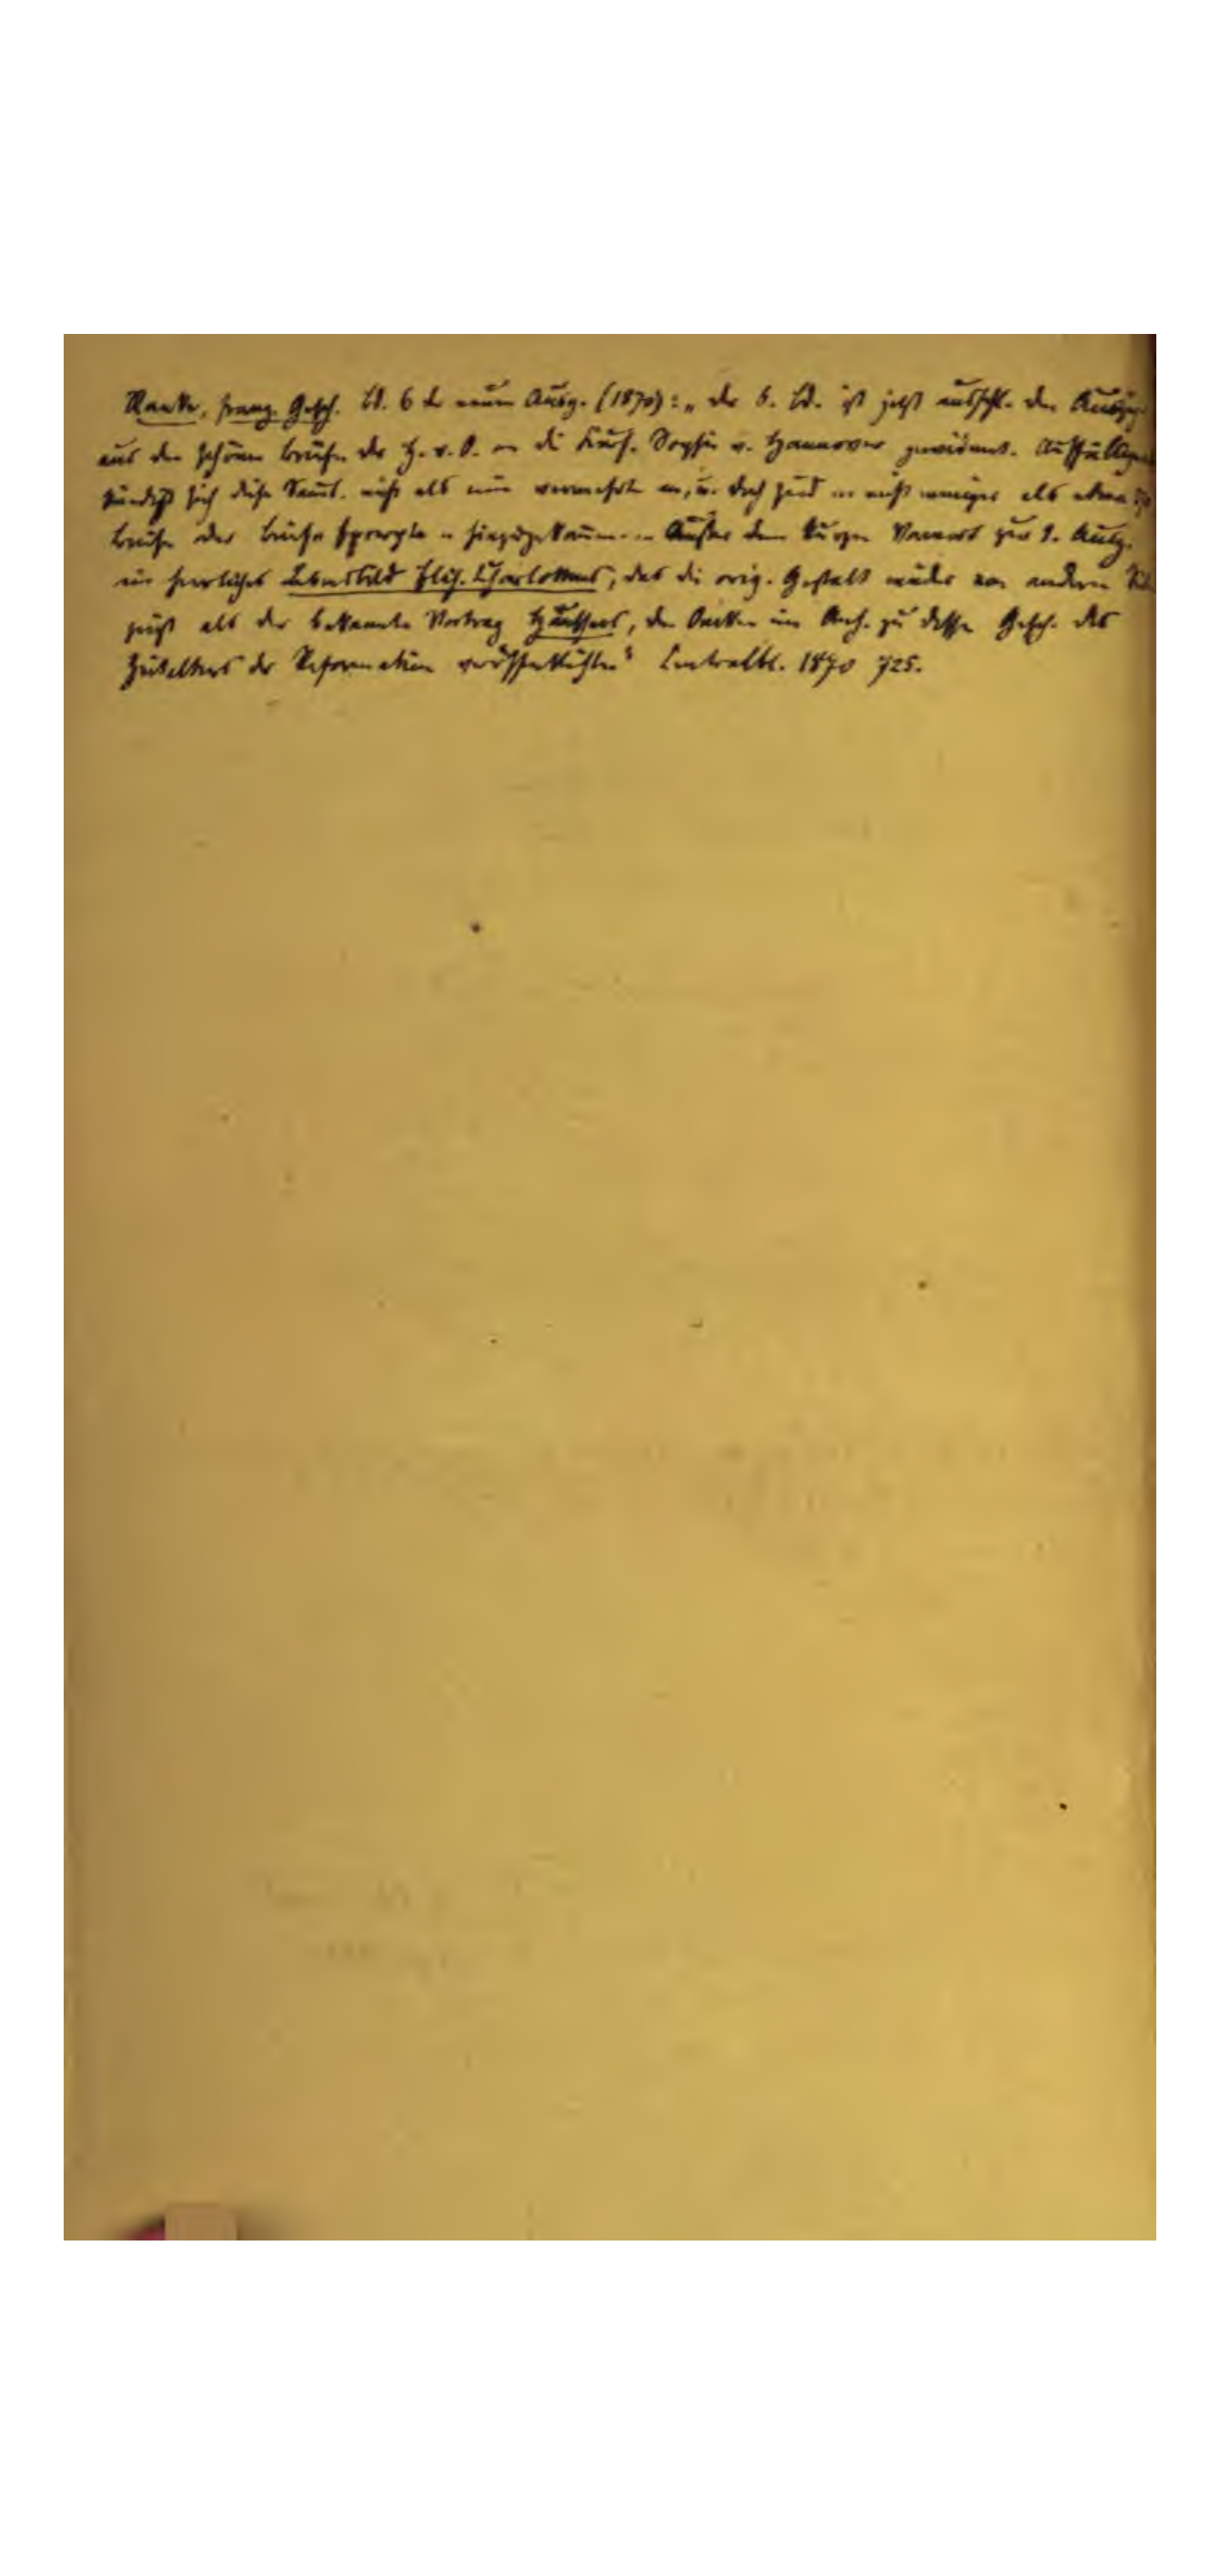 Ranke, franz. Gesch. Bd. 6 der neuen Ausg. (1870): „der 6. Bd. ist jetzt ausschl. den Auszüg.
aus den schönen Briefen der H. v. O. an die Kurf. Sophie v. Hannover gewidmet. Auffälliger
kündigt sich diese Saml. nicht als neu vermehrt an, u. doch sind nicht weniger als etwa
Briefe oder hinzugekommen. Außer dem kurzen Vorwort zur 1. Ausg.
ein herrliches Lebensbild Elis. Charlottens, das die orig. Gestalt wieder von andern
zeigt als der bekannte Vortrag Häussers, den Oncken im Anh. zu dessen Gesch. des
Zeitalters der Reformation veröffentlichte“ Centralbl. 1870 725.